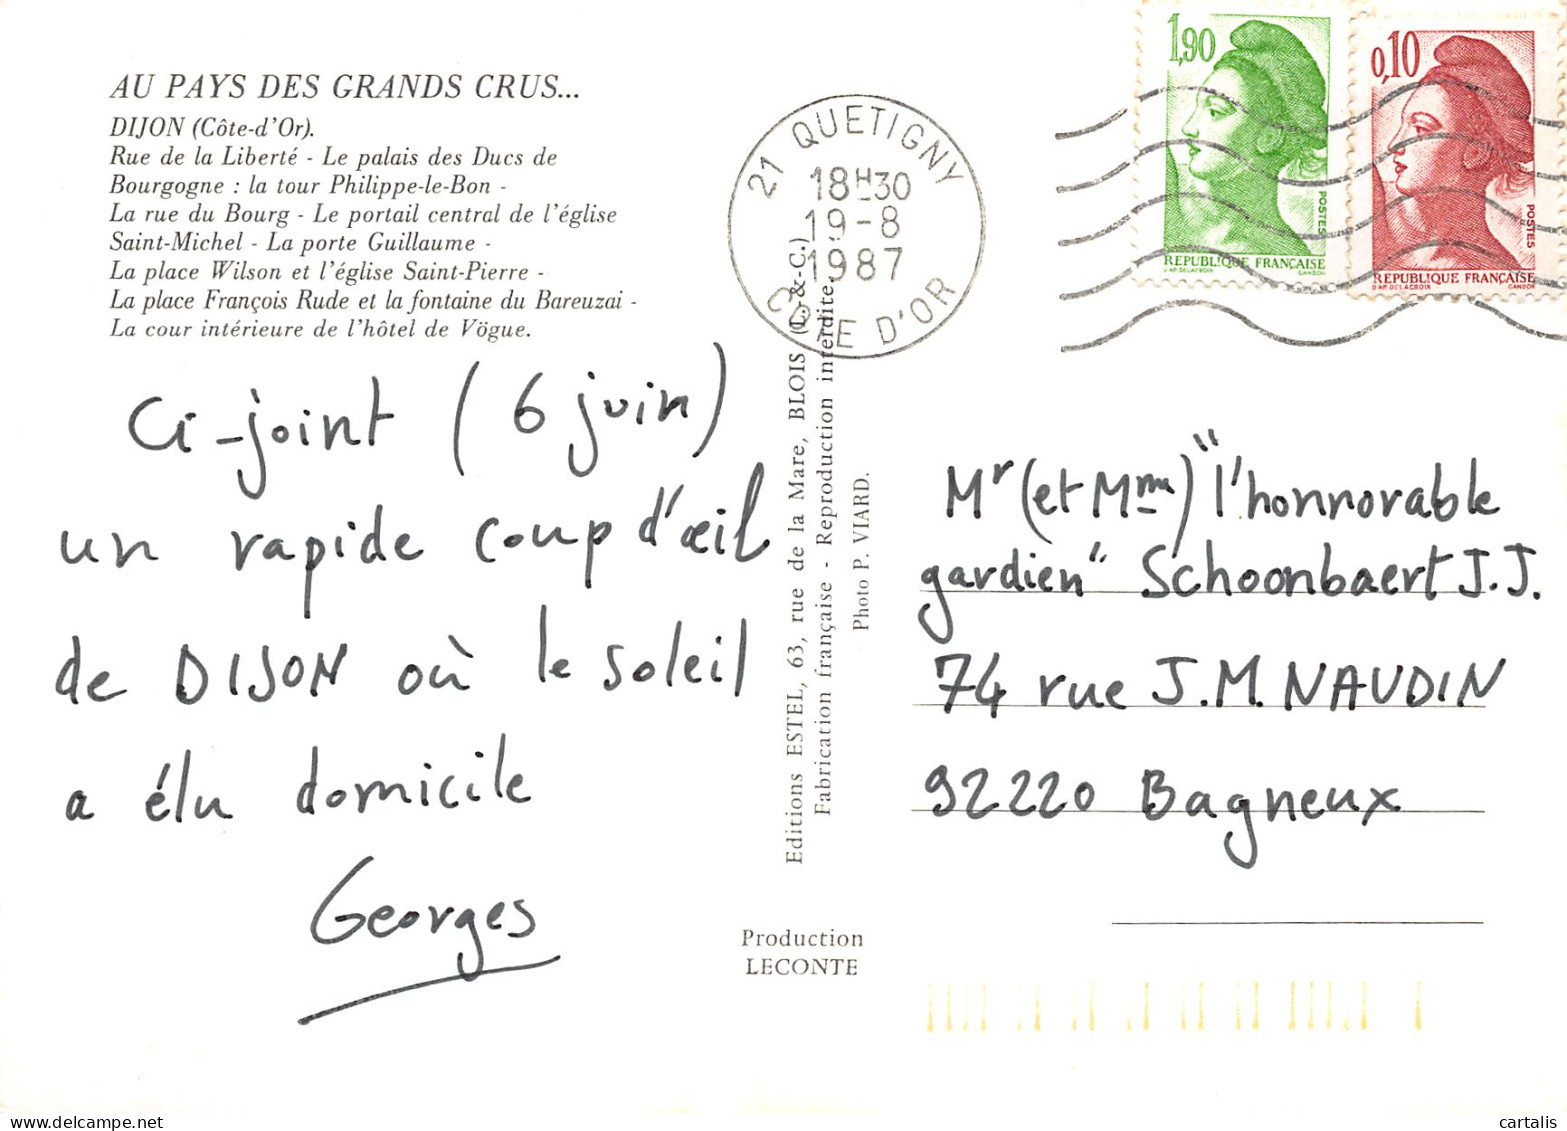 AU PAYS DES GRANDS CRUS...
DIJON (Côte-d'Or).
Rue de la Liberté - Le palais des Ducs de
Bourgogne : la tour Philippe-le-Bon -
La rue du Bourg - Le portail central de l'église
Saint-Michel - La porte Guillaume -
La place Wilson et l'église Saint-Pierre -
La place François Rude et la fontaine du Bareuzai -
La cour intérieure de l'hôtel de Vögue.
Ci-joint (6 juin)
un rapide coup d'œil
de DIJON où le soleil
a élu domicile
Georges
Editions ESTEL, 63, rue de la Mare, BLOIS (L.-&-C.)
Fabrication française - Reproduction interdite
Photo P. VIARD.
Production
LECONTE
21 QUETIGNY
18H30
19-8
1987
COTE D'OR
1,90
POSTES
REPUBLIQUE FRANÇAISE
D'AP. DELACROIX GANDON
0,10
POSTES
REPUBLIQUE FRANÇAISE
D'AP. DELACROIX GANDON
Mr (et Mme) "l'honnorable
gardien" Schoonbaert J.J.
74 rue J.M. NAUDIN
92220 Bagneux
cartalis